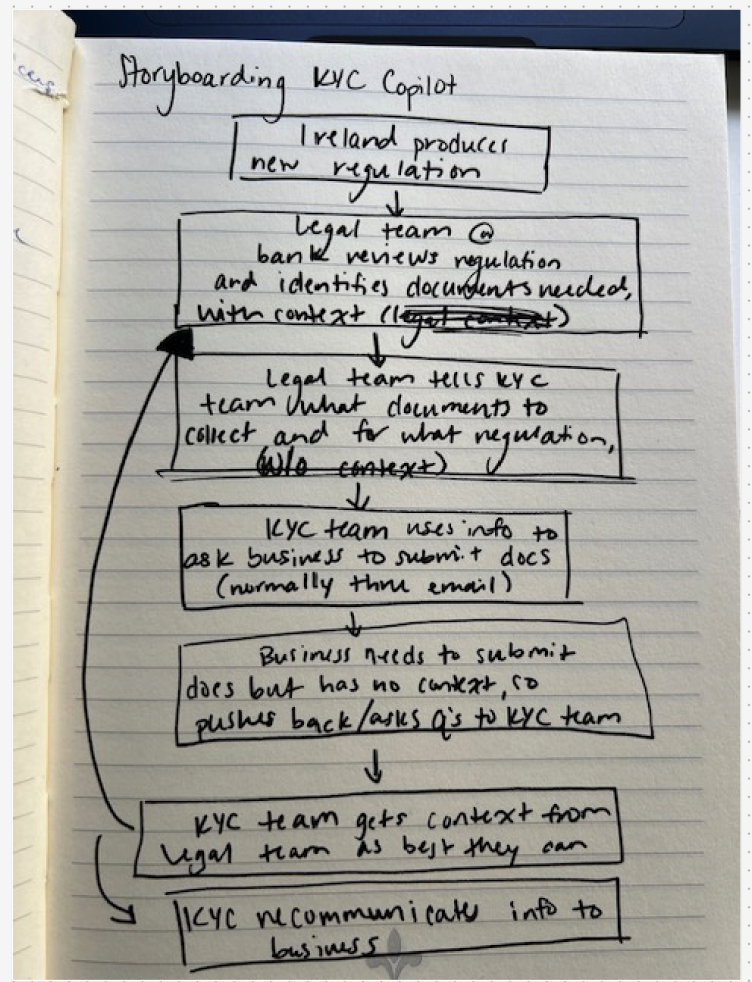 Storyboarding KYC Copilot
Ireland produces
new regulation
Legal team @
bank reviews regulation
and identifies documents needed,
with context (legal context)
Legal team tells KYC
team what documents to
collect and for what regulation,
(w/o context)
KYC team uses info to
ask business to submit docs
(normally thru email)
Business needs to submit
docs but has no context, so
pushes back/asks Q's to KYC team
KYC team gets context from
legal team as best they can
KYC recommunicates info to
business